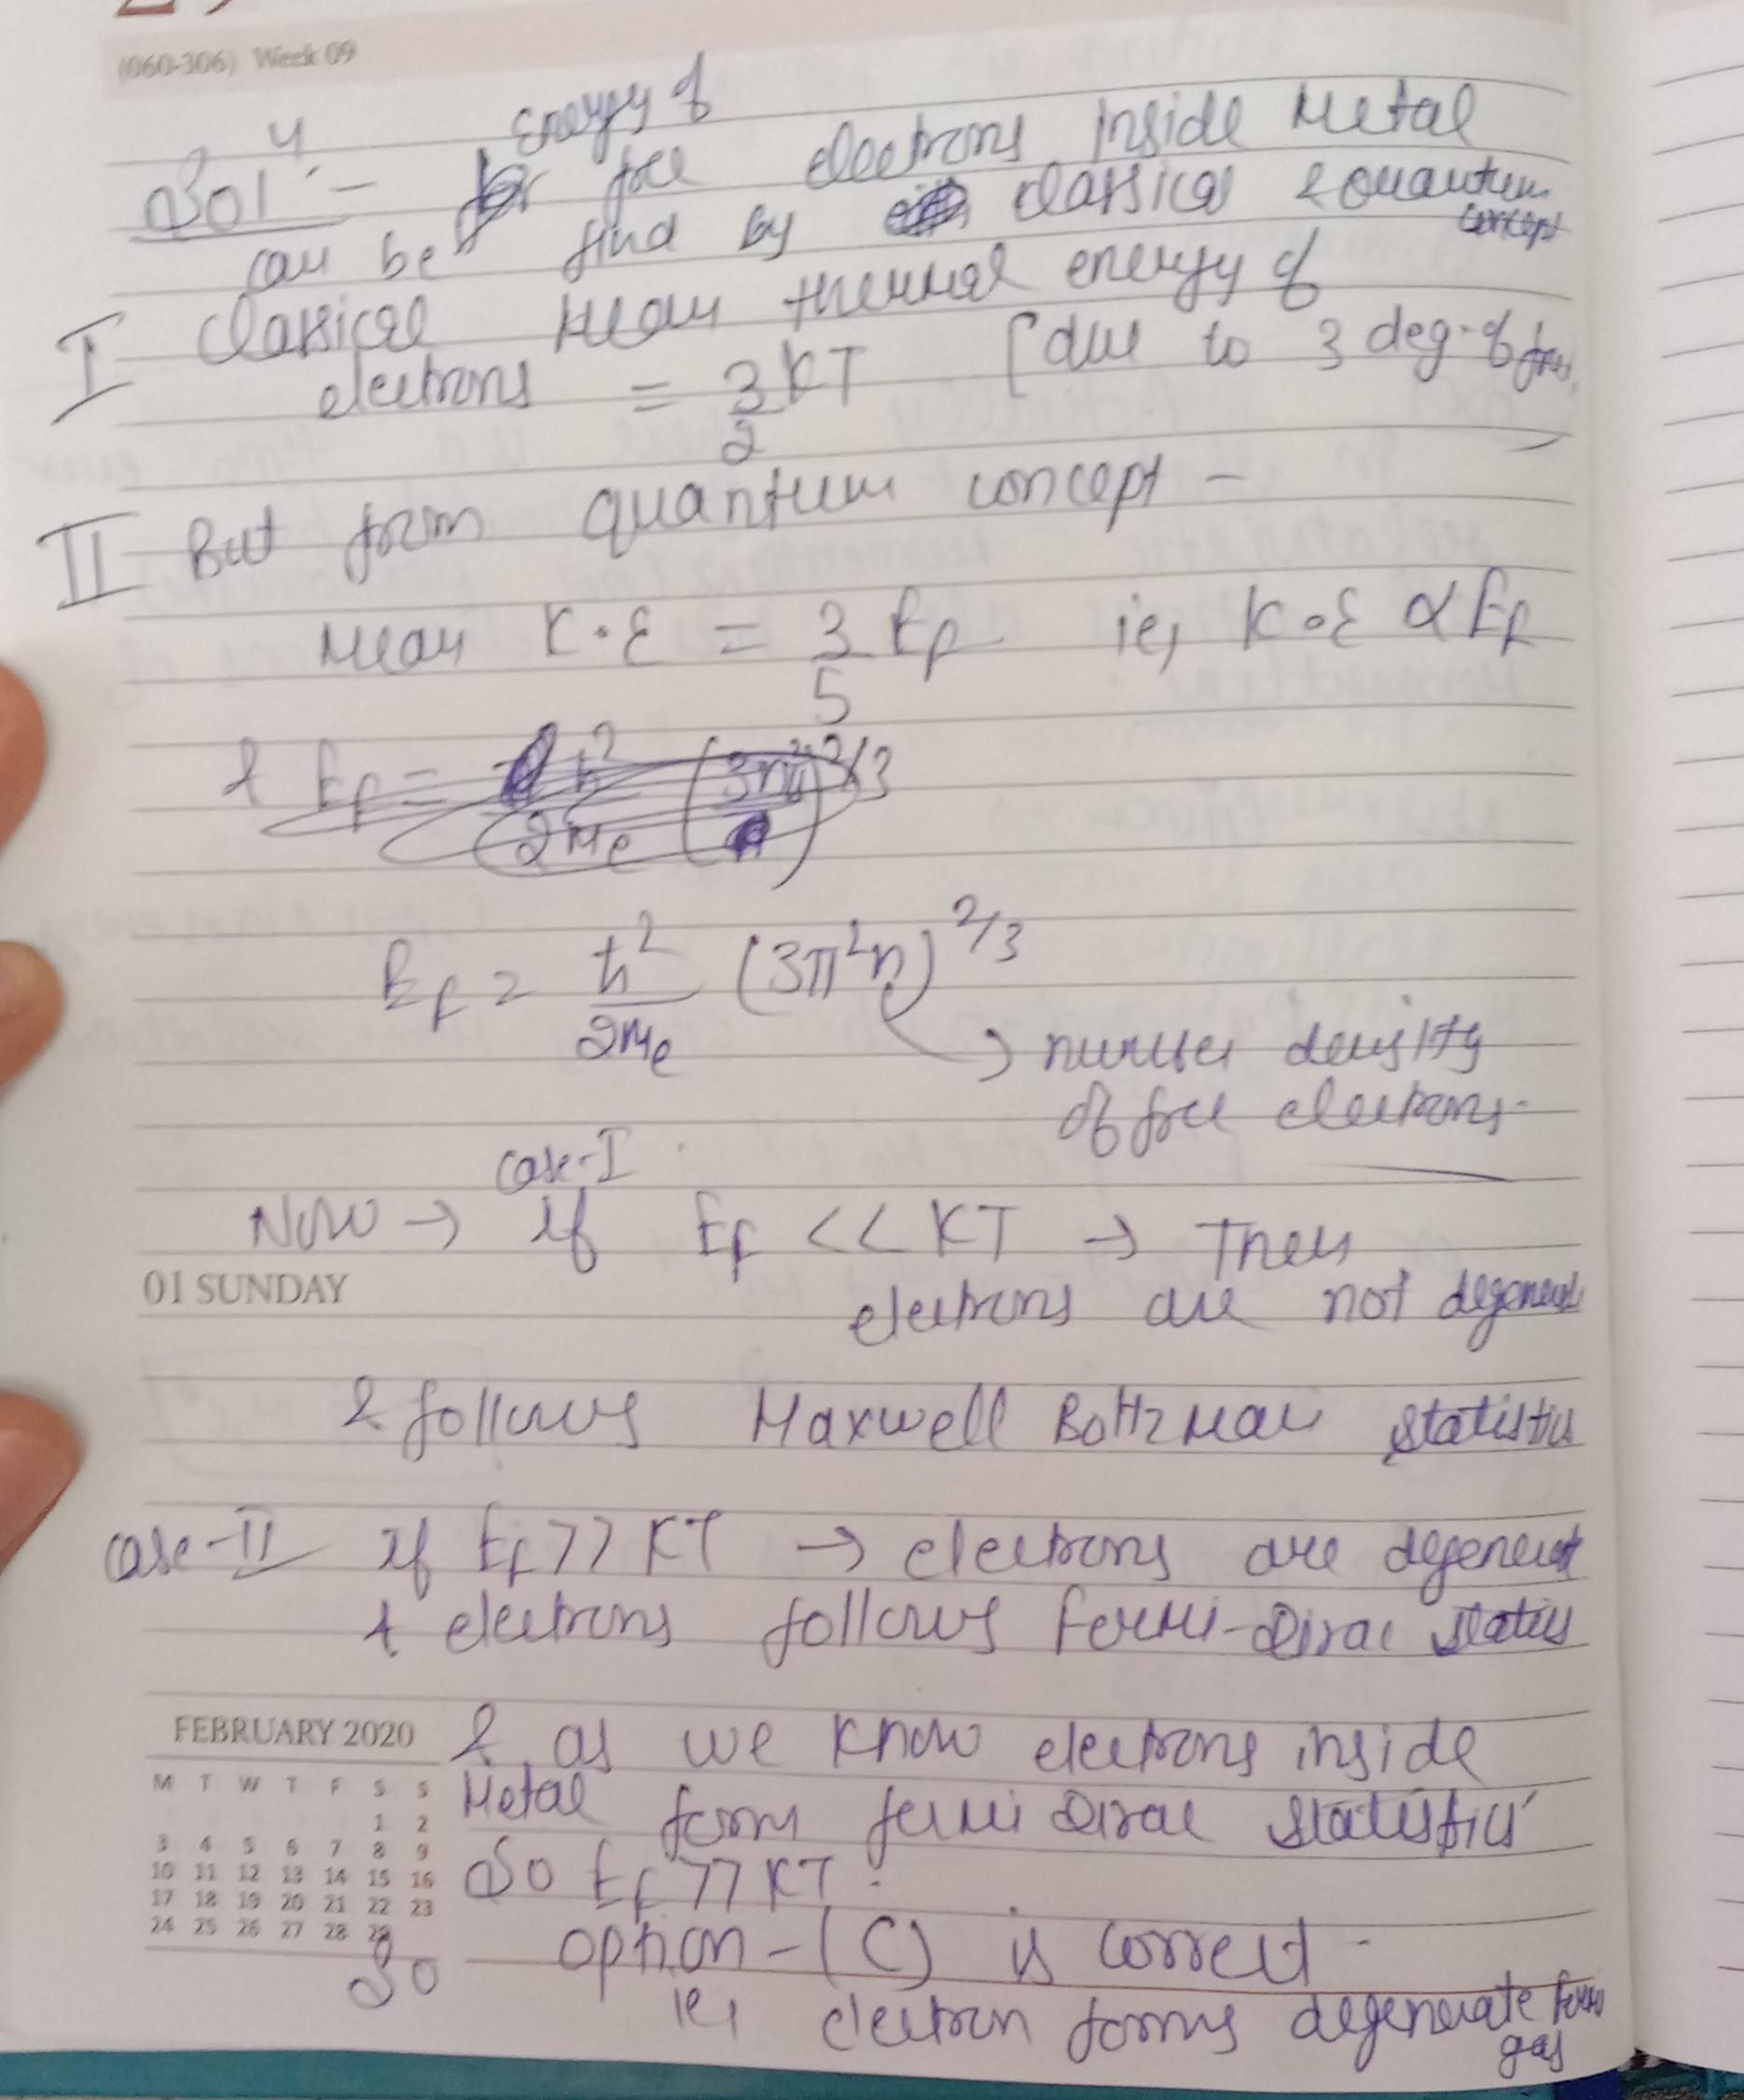 (060-306) Week 09
Energy of
Solⁿ:- free electrons inside Metal
can be find by classical & Quantum
concept
I Classical Mean thermal energy of
electrons = 3/2 KT [due to 3 deg. of free.
II But form quantum concept -
Mean K.E = 3/5 Ef ie, K.E ∝ Ef
& Ef = ħ²/2me (3nπ²)^2/3
Ef = ħ²/2me (3π²n)^2/3
→ number density
of free electrons.
Case-I
Now → if Ef << KT → Then
01 SUNDAY
electrons are not degenerat
& follows Maxwell Boltzman statistics
Case-II if Ef >> KT → electrons are degenerat
& electrons follows Fermi-Dirac statis
FEBRUARY 2020
& as we know electrons inside
M T W T F S S
Metal form fermi Dirac statistics
1 2
3 4 5 6 7 8 9
So Ef >> KT.
10 11 12 13 14 15 16
17 18 19 20 21 22 23
24 25 26 27 28 29
So option-(C) is correct.
ie, electron forms degenerate
gas